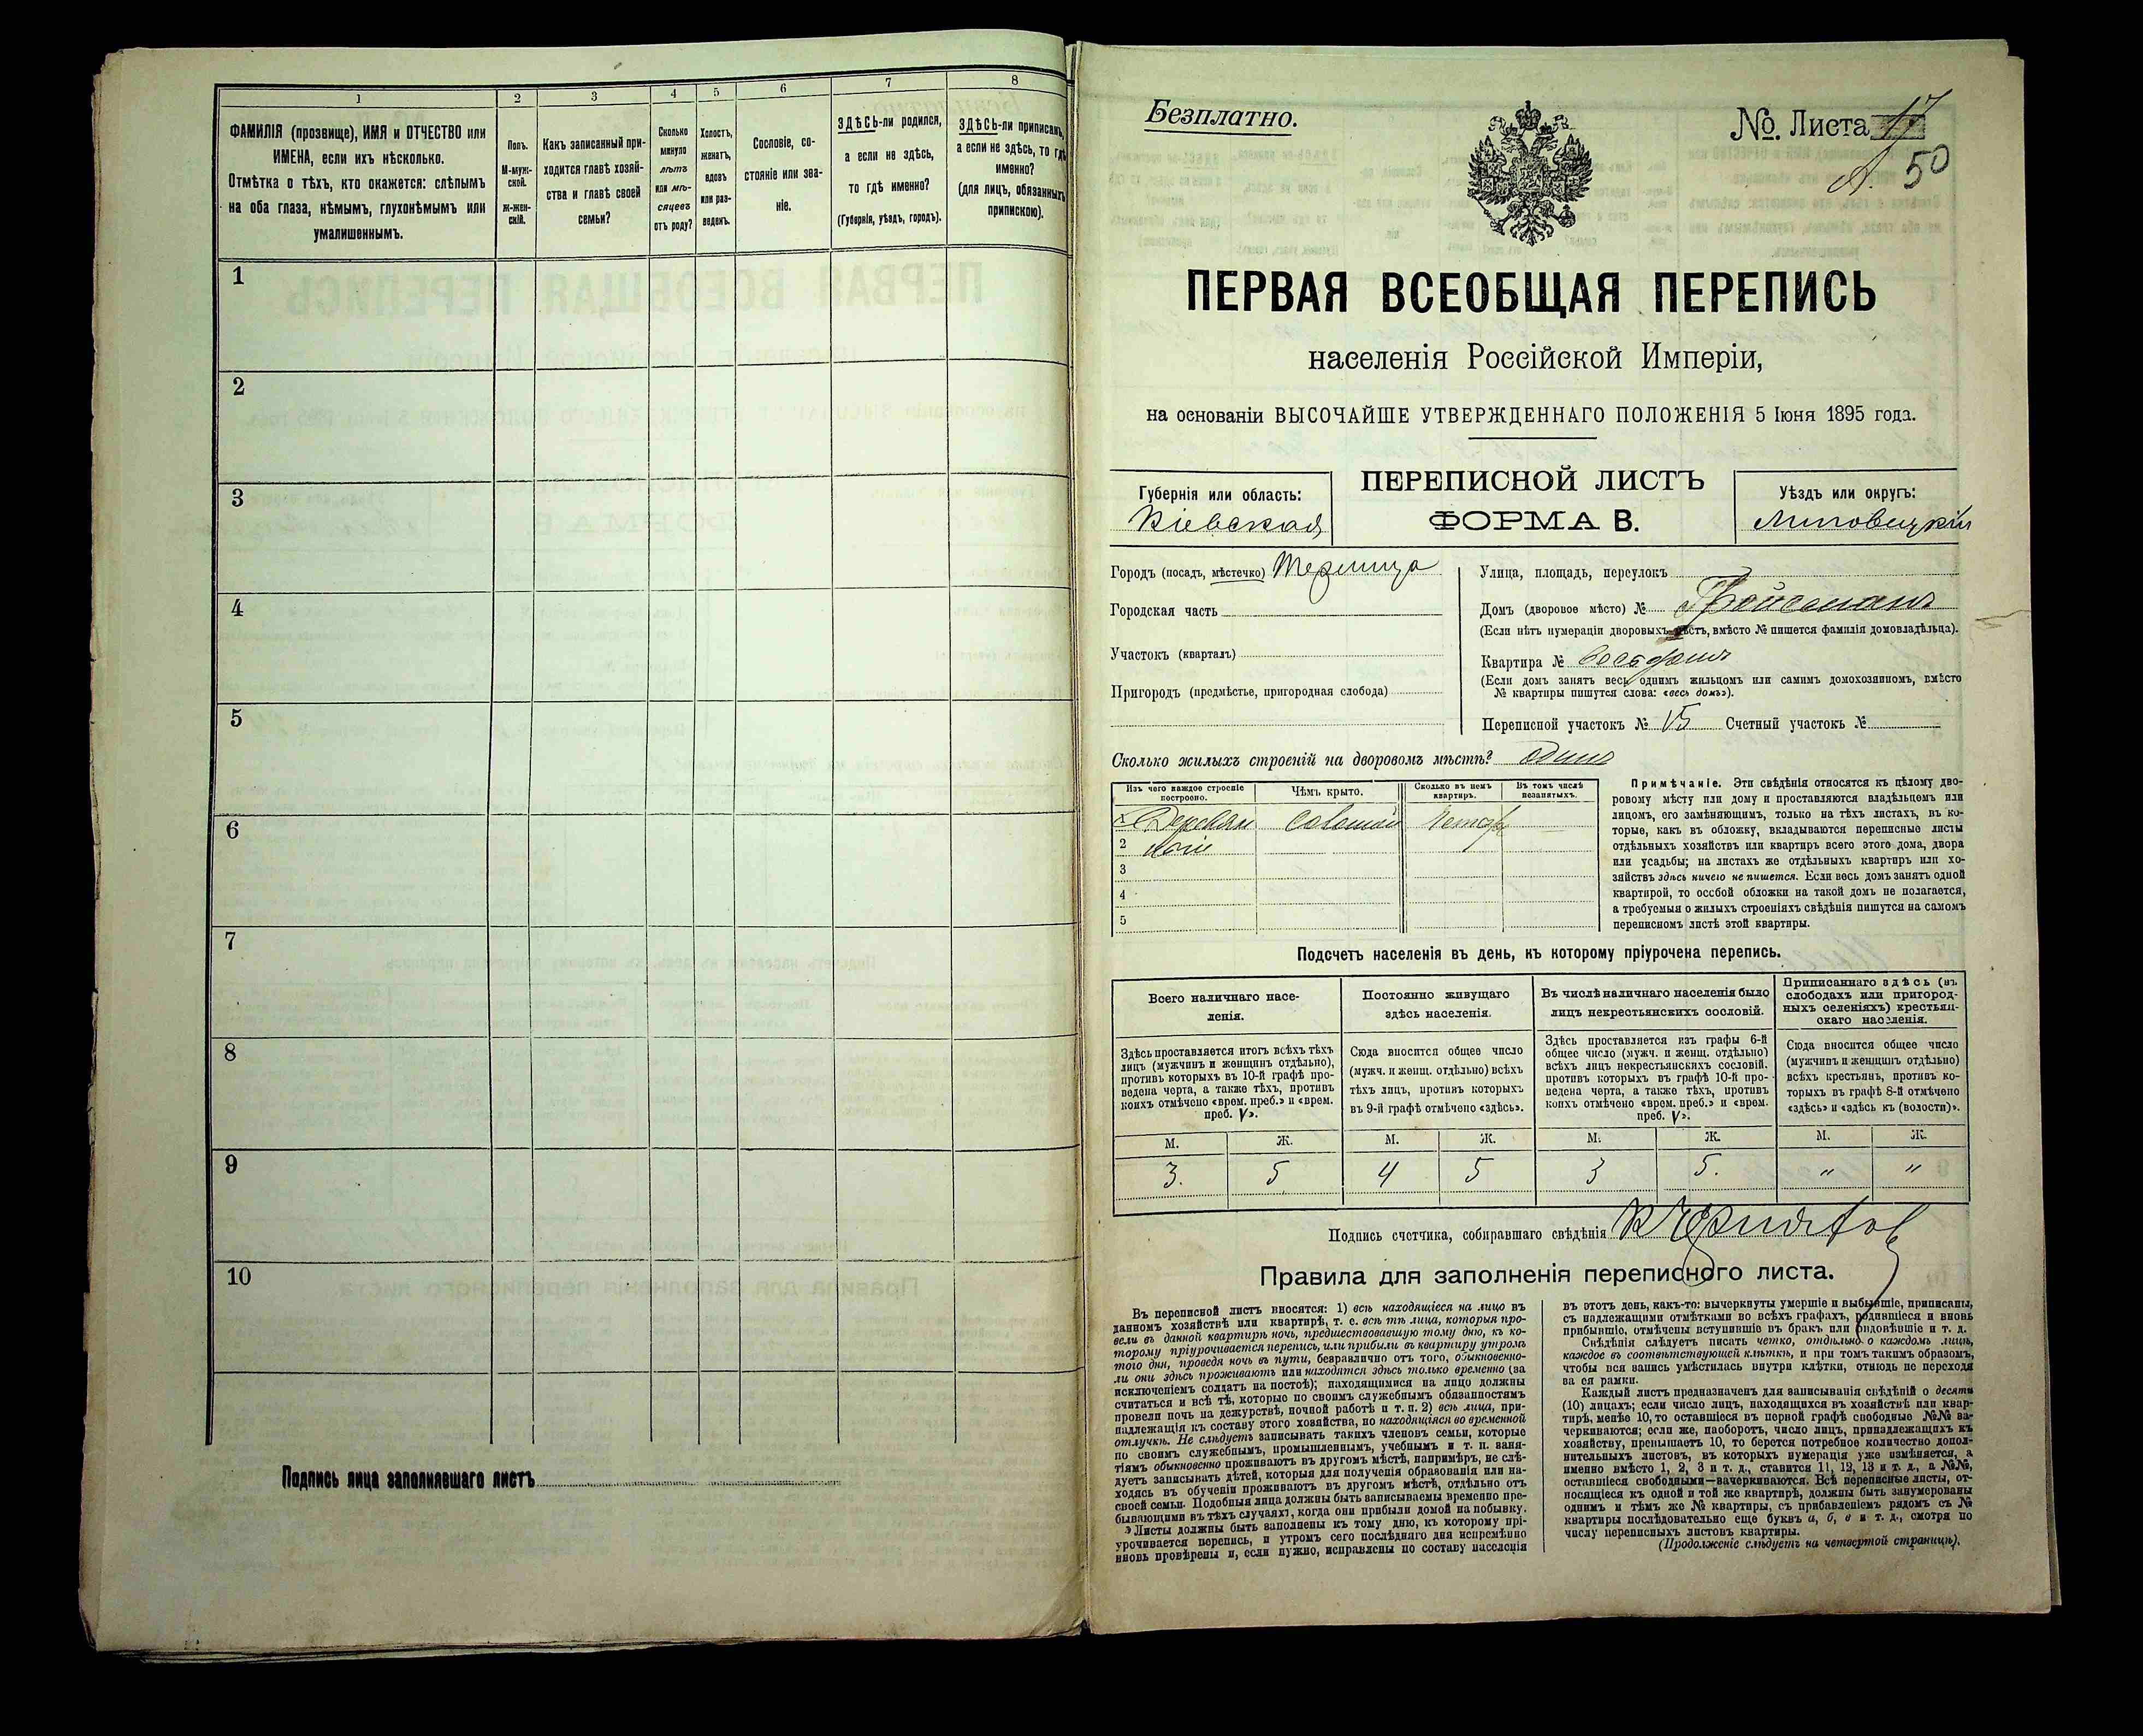 1
2
3
4
5
6
7
8
ФАМИЛІЯ (прозвище), ИМЯ и ОТЧЕСТВО или
ИМЕНА, если ихъ нѣсколько.
Отмѣтка о тѣхъ, кто окажется: слѣпымъ
на оба глаза, нѣмымъ, глухонѣмымъ или
умалишеннымъ.
Полъ.
М-муж-
ской.
Ж-жен-
скій.
Какъ записанный при-
ходится главѣ хозяй-
ства и главѣ своей
семьи?
Сколько
минуло
лѣтъ
или мѣ-
сяцевъ
отъ роду?
Холостъ,
женатъ,
вдовъ
или раз-
веденъ.
Сословіе, со-
стояніе или зва-
ніе.
ЗДѢСЬ-ли родился,
а если не здѣсь,
то гдѣ именно?
(Губернія, уѣздъ, городъ).
ЗДѢСЬ-ли приписанъ,
а если не здѣсь, то гдѣ
именно?
(для лицъ, обязанныхъ
припискою).
1
2
3
4
5
6
7
8
9
10
Подпись лица заполнявшаго листъ
Безплатно.
№. Листа 17
50
ПЕРВАЯ ВСЕОБЩАЯ ПЕРЕПИСЬ
населенія Россійской Имперіи,
на основаніи ВЫСОЧАЙШЕ УТВЕРЖДЕННАГО ПОЛОЖЕНІЯ 5 Іюня 1895 года.
Губернія или область:
Кіевская
ПЕРЕПИСНОЙ ЛИСТЪ
ФОРМА В.
Уѣздъ или округъ:
Липовецкій
Городъ (посадъ, мѣстечко) Терлица
Городская часть
Участокъ (кварталъ)
Пригородъ (предмѣстье, пригородная слобода)
Улица, площадь, переулокъ
Домъ (дворовое мѣсто) №
(Если нѣтъ нумераціи дворовыхъ мѣстъ, вмѣсто № пишется фамилія домовладѣльца).
Квартира № весь домъ
(Если домъ занятъ весь однимъ жильцомъ или самимъ домохозяиномъ, вмѣсто
№ квартиры пишутся слова: «весь домъ»).
Переписной участокъ № 15 Счетный участокъ №
Сколько жилыхъ строеній на дворовомъ мѣстѣ? одно
Изъ чего каждое строеніе
построено.
Чѣмъ крыто.
Сколько въ немъ
квартиръ.
Въ томъ числѣ
незанятыхъ.
Деревян
2
3
4
5
Примѣчаніе. Эти свѣдѣнія относятся къ цѣлому дво-
ровому мѣсту или дому и проставляются владѣльцемъ или
лицомъ, его замѣняющимъ, только на тѣхъ листахъ, въ ко-
торые, какъ въ обложку, вкладываются переписные листы
отдѣльныхъ хозяйствъ или квартиръ всего этого дома, двора
или усадьбы; на листахъ же отдѣльныхъ квартиръ или хо-
зяйствъ здѣсь ничего не пишется. Если весь домъ занятъ одной
квартирой, то особой обложки на такой домъ не полагается,
а требуемыя о жилыхъ строеніяхъ свѣдѣнія пишутся на самомъ
переписномъ листѣ этой квартиры.
Подсчетъ населенія въ день, къ которому пріурочена перепись.
Всего наличнаго насе-
ленія.
Постоянно живущаго
здѣсь населенія.
Въ числѣ наличнаго населенія было
лицъ некрестьянскихъ сословій.
Приписаннаго здѣсь (въ
слободахъ или пригород-
ныхъ селеніяхъ) крестьян-
скаго населенія.
Здѣсь проставляется итогъ всѣхъ тѣхъ
лицъ (мужчинъ и женщинъ отдѣльно),
противъ которыхъ въ 10-й графѣ про-
ведена черта, а также тѣхъ, противъ
коихъ отмѣчено «врем. преб.» и «врем.
преб. V».
Сюда вносится общее число
(мужч. и женщ. отдѣльно) всѣхъ
тѣхъ лицъ, противъ которыхъ
въ 9-й графѣ отмѣчено «здѣсь».
Здѣсь проставляется изъ графы 6-й
общее число (мужч. и женщ. отдѣльно)
всѣхъ лицъ некрестьянскихъ сословій,
противъ которыхъ въ графѣ 10-й про-
ведена черта, а также тѣхъ, противъ
коихъ отмѣчено «врем. преб.» и «врем.
преб. V».
Сюда вносится общее число
(мужчинъ и женщинъ отдѣльно)
всѣхъ крестьянъ, противъ ко-
торыхъ въ графѣ 8-й отмѣчено
«здѣсь» и «здѣсь къ (волости)».
М. Ж. М. Ж. М. Ж. М. Ж.
3. 5 4 5 3 5. " "
Подпись счетчика, собиравшаго свѣдѣнія
Правила для заполненія переписного листа.
Въ переписной листъ вносятся: 1) всѣ находящіеся на лицо въ
данномъ хозяйствѣ или квартирѣ, т. е. всѣ тѣ лица, которыя про-
вели въ данной квартирѣ ночь, предшествовавшую тому дню, къ ко-
торому пріурочивается перепись, или прибыли въ квартиру утромъ
того дня, проведя ночь въ пути, безразлично отъ того, обыкновенно-
ли они здѣсь проживаютъ или находятся здѣсь только временно (за
исключеніемъ солдатъ на постоѣ); находящимися на лицо должны
считаться и всѣ тѣ, которые по своимъ служебнымъ обязанностямъ
провели ночь на дежурствѣ, ночной работѣ и т. п. 2) всѣ лица, при-
надлежащія къ составу этого хозяйства, но находящіяся во временной
отлучкѣ. Не слѣдуетъ записывать такихъ членовъ семьи, которые
по своимъ служебнымъ, промышленнымъ, учебнымъ и т. п. заня-
тіямъ обыкновенно проживаютъ въ другомъ мѣстѣ, напримѣръ, не слѣ-
дуетъ записывать дѣтей, которыя для полученія образованія или на-
ходясь въ обученіи проживаютъ въ другомъ мѣстѣ, отдѣльно отъ
своей семьи. Подобныя лица должны быть записываемы временно пре-
бывающими въ тѣхъ случаяхъ, когда они прибыли домой на побывку.
Листы должны быть заполнены къ тому дню, къ которому прі-
урочивается перепись, и утромъ сего послѣдняго дня непремѣнно
вновь провѣрены и, если нужно, исправлены по составу населенія
въ этотъ день, какъ-то: вычеркнуты умершіе и выбывшіе, приписаны,
съ надлежащими отмѣтками во всѣхъ графахъ, родившіеся и вновь
прибывшіе, отмѣчены вступившіе въ бракъ или овдовѣвшіе и т. д.
Свѣдѣнія слѣдуетъ писать четко, отдѣльно о каждомъ лицѣ,
каждое въ соотвѣтствующей клѣткѣ, и при томъ такимъ образомъ,
чтобы вся запись умѣстилась внутри клѣтки, отнюдь не переходя
за ея рамки.
Каждый листъ предназначенъ для записыванія свѣдѣній о десяти
(10) лицахъ; если число лицъ, находящихся въ хозяйствѣ или квар-
тирѣ, менѣе 10, то оставшіеся въ первой графѣ свободные №№ за-
черкиваются; если же, наоборотъ, число лицъ, принадлежащихъ къ
хозяйству, превышаетъ 10, то берется потребное количество допол-
нительныхъ листовъ, въ которыхъ нумерація уже измѣняется, а
именно вмѣсто 1, 2, 3 и т. д., ставится 11, 12, 13 и т. д., а №№,
оставшіеся свободными—зачеркиваются. Всѣ переписные листы, от-
носящіеся къ одной и той же квартирѣ, должны быть занумерованы
однимъ и тѣмъ же № квартиры, съ прибавленіемъ рядомъ съ №
квартиры послѣдовательно еще буквъ а, б, в и т. д., смотря по
числу переписныхъ листовъ квартиры.
(Продолженіе слѣдуетъ на четвертой страницѣ).